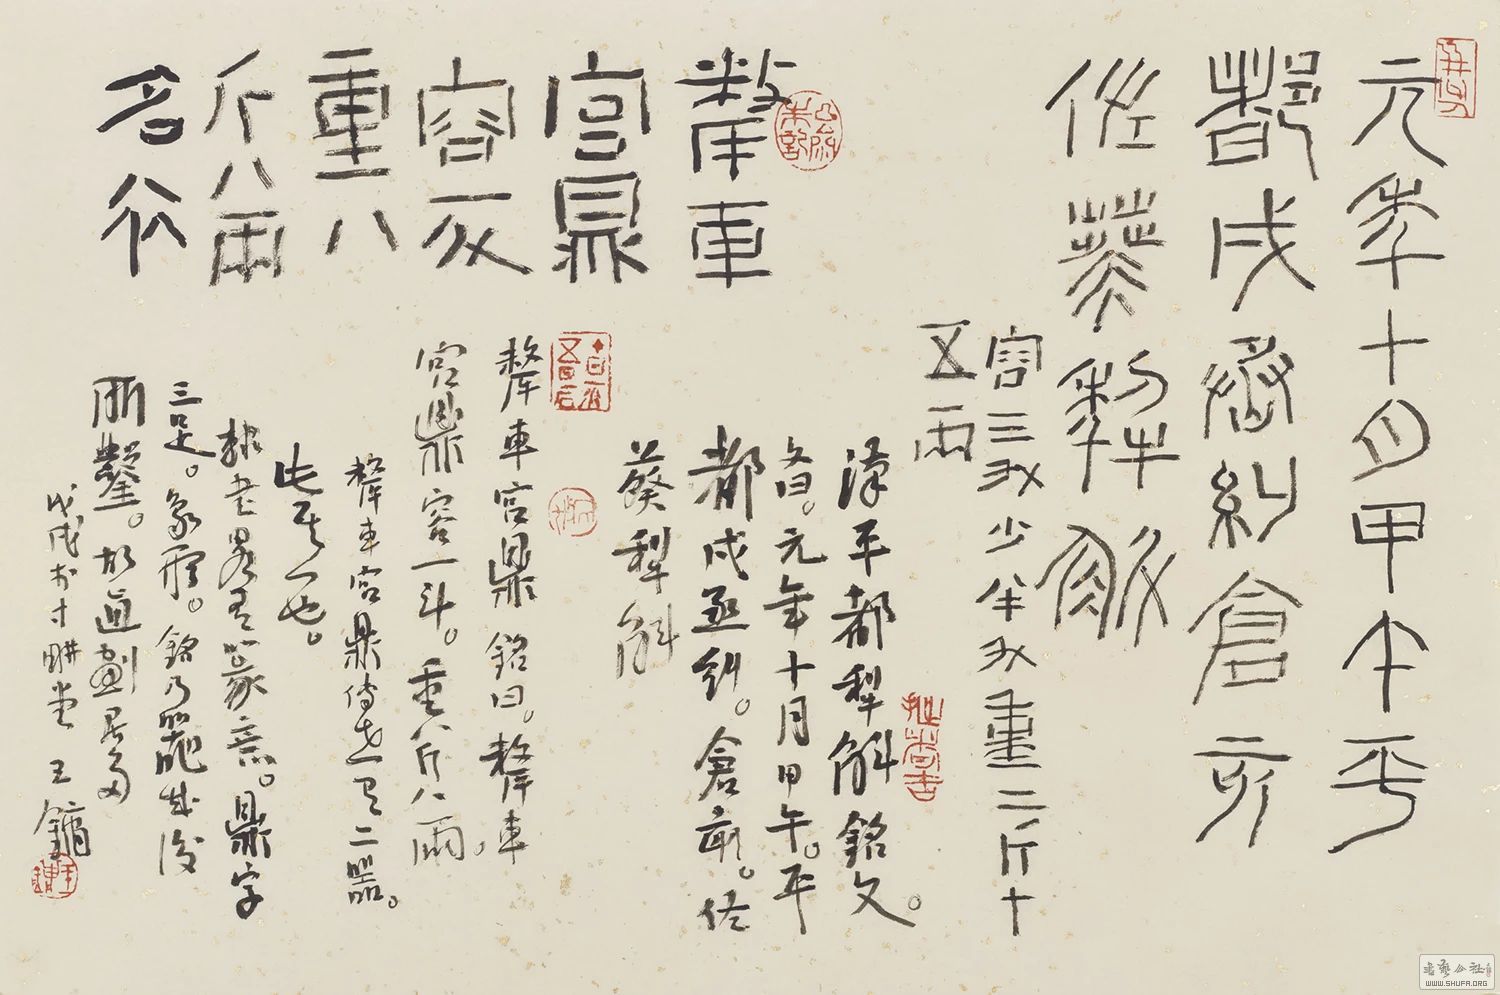 元年十月甲午平
都戌丞糾倉亥
佐葵犁斛
容三升少半升重二斤十
五兩
漢平都犁斛銘文。
文曰。元年十月甲午。平
都戌丞糾。倉亥。佐
葵犁斛
犛車
宮鼎
容一斗
重八
斤八兩
名
犛車宮鼎銘曰。犛車
宮鼎容一斗。重八斤八兩。
犛車宮鼎傳世有二器。
此其一也。
隸書略有篆意。鼎字
三足。象形。銘乃器成後
所鑿。故
戊戌於寸耕堂 王鏞
WWW.SHUFA.ORG